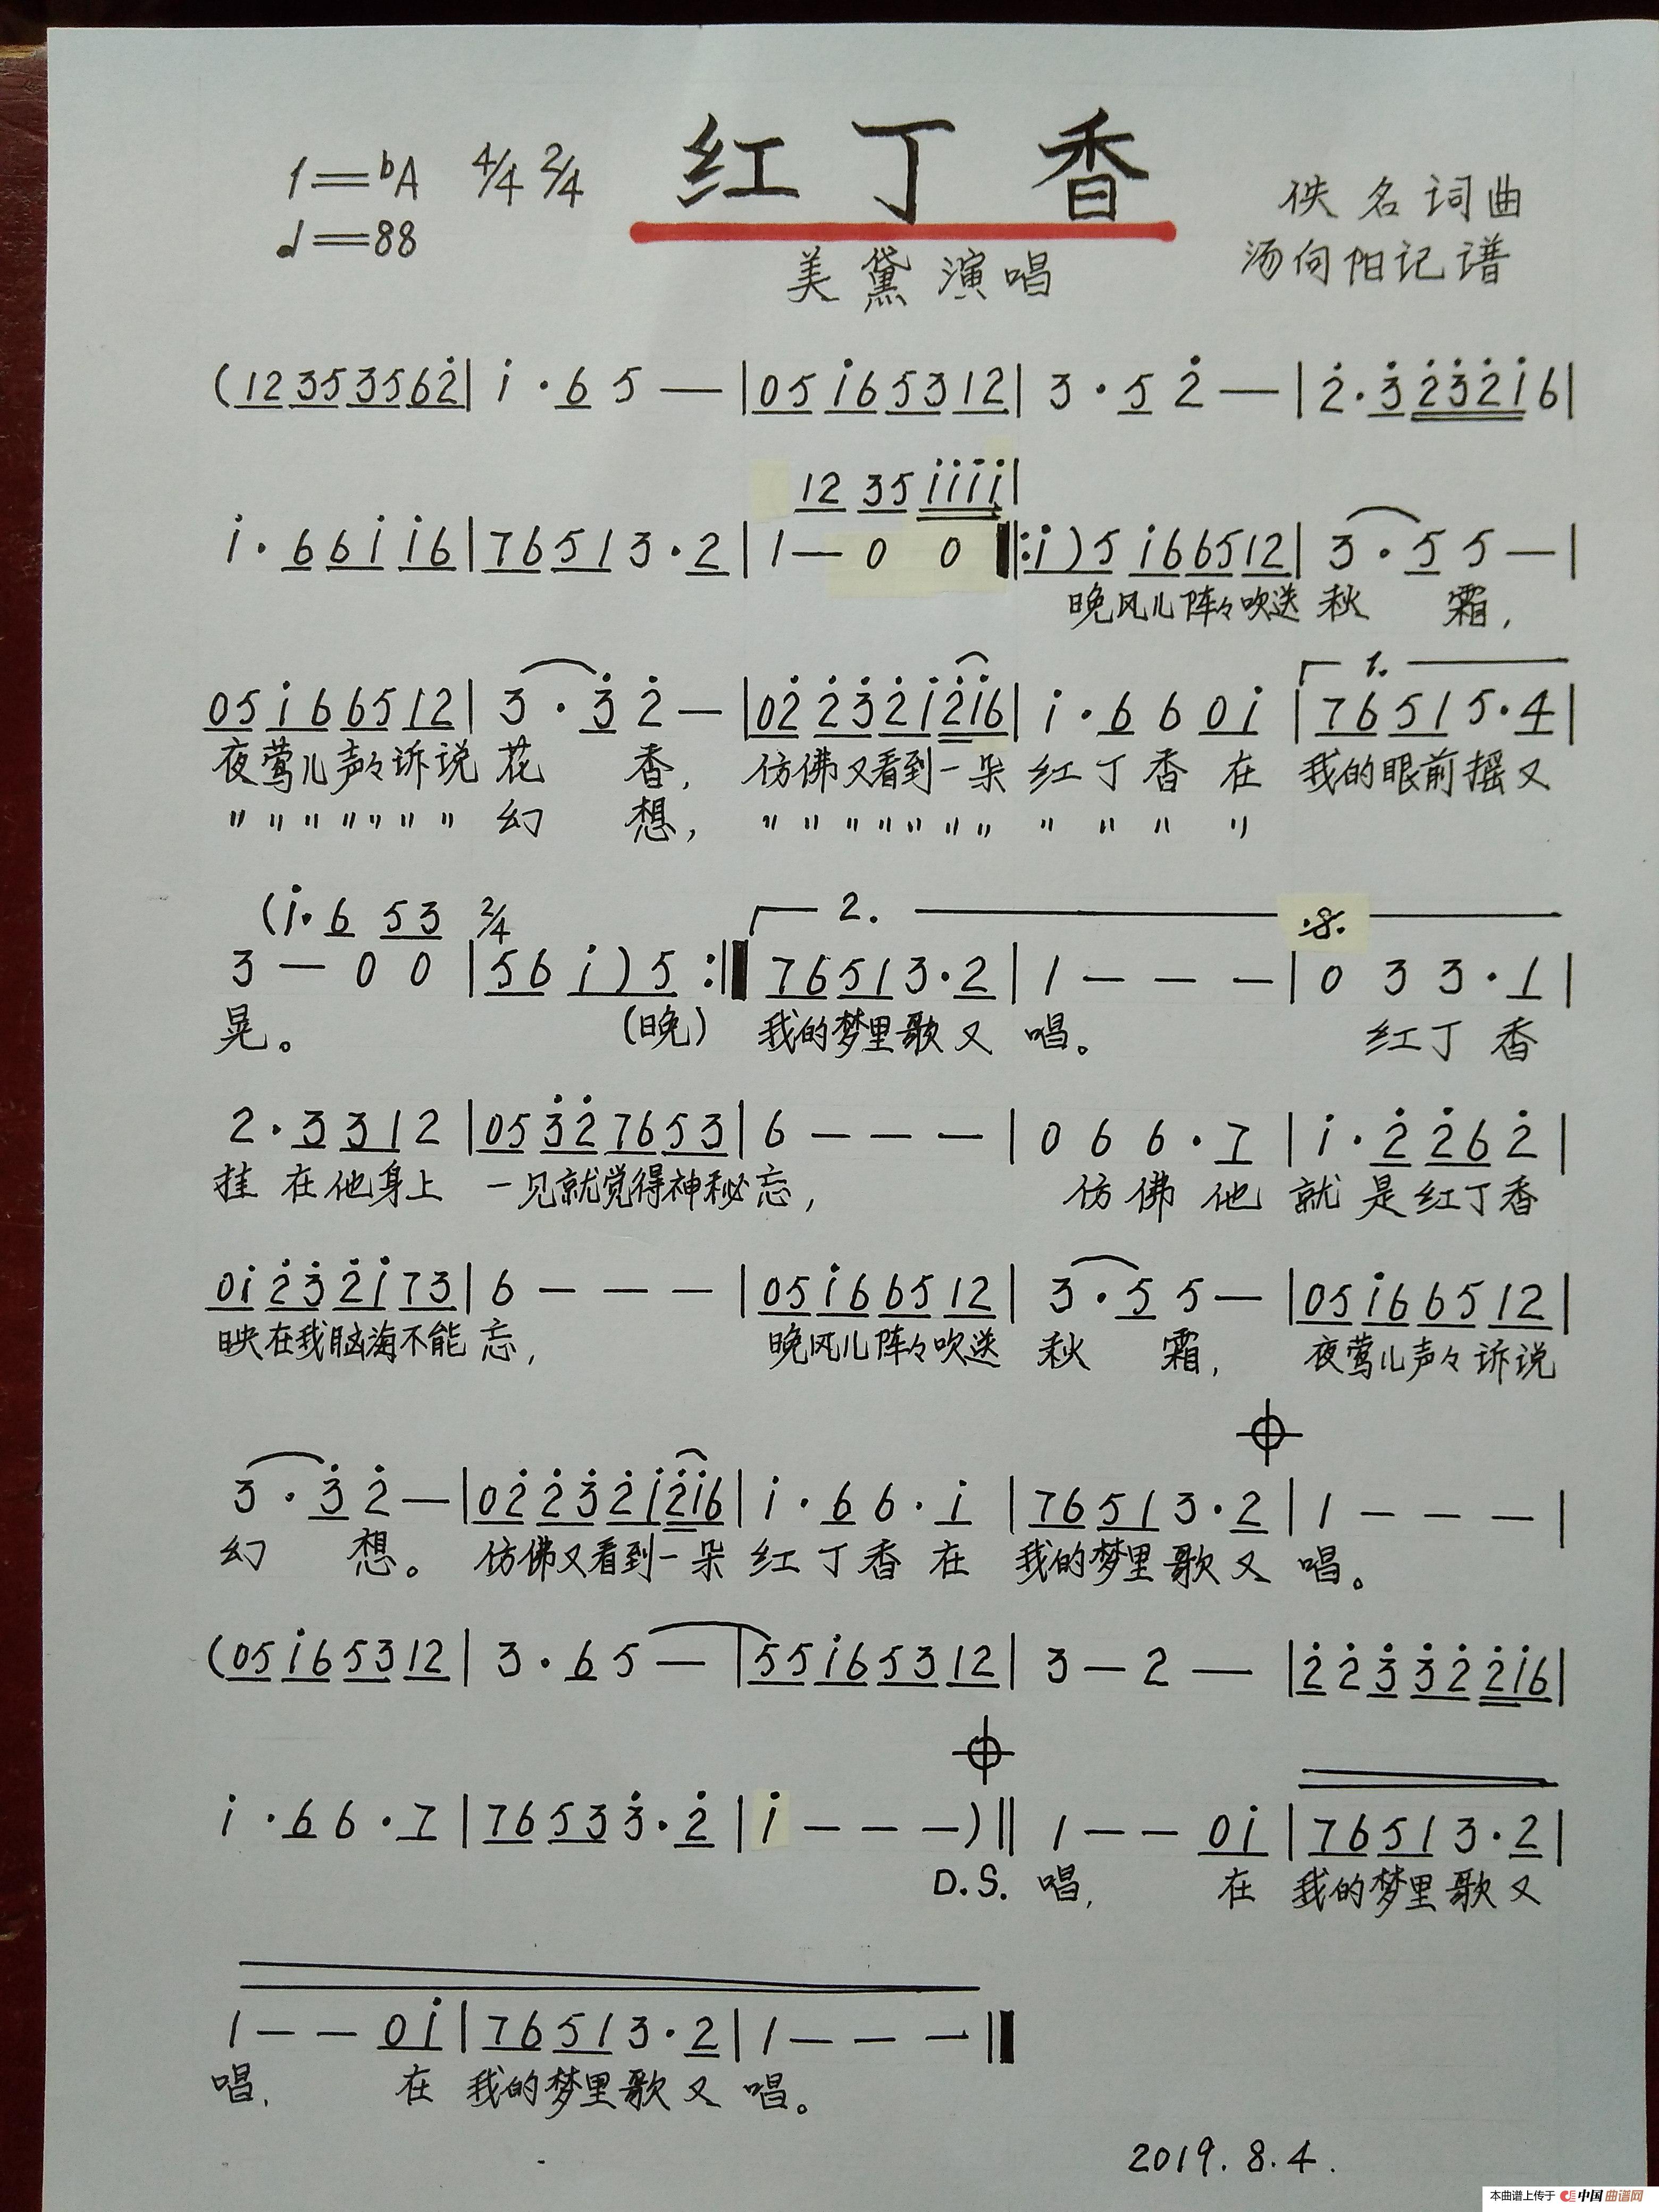 红丁香
1=♭A 4/4 2/4
♩=88
佚名词曲
美黛演唱
汤向阳记谱
(12 35 35 62̇ | 1̇ · 6 5 — | 05 1̇6 53 12 | 3 · 5 2̇ — | 2̇ · 3̇ 2̇3̇2̇1̇ 6 |
12 35 1̇1̇1̇1̇ |
1̇ · 6 61̇ 1̇6 | 76 51 3 · 2 | 1 — 0 0 ‖: 1̇) 5 1̇6 65 12 | 3 · 5 5 — |
晚风儿阵々吹送 秋 霜,
1.
05 1̇6 65 12 | 3 · 3̇ 2̇ — | 02̇ 2̇3̇ 2̇1̇ 2̇1̇6 | 1̇ · 6 6 01̇ | 76 51 5 · 4 |
夜莺儿声々诉说 花 香, 仿佛又看到一朵 红丁香 在 我的眼前摇又
〃 〃 〃 〃 〃 〃 〃 幻 想, 〃 〃 〃 〃 〃 〃 〃 〃 〃 〃 〃 〃
(1̇ · 6 53 2/4 2. 𝄋
3 — 0 0 | 56 1̇) 5 :‖ 76 51 3 · 2 | 1 — — — | 0 3 3 · 1 |
晃。 (晚) 我的梦里歌又 唱。 红丁香
2 · 3 31 2 | 05 3̇2̇ 76 53 | 6 — — — | 0 6 6 · 7 | 1̇ · 2̇ 2̇6 2̇ |
挂在他身上 一见就觉得神秘忘, 仿佛他 就是红丁香
01̇ 2̇3̇ 2̇1̇ 73 | 6 — — — | 05 1̇6 65 12 | 3 · 5 5 — | 05 1̇6 65 12 |
映在我脑海不能 忘, 晚风儿阵々吹送 秋 霜, 夜莺儿声々诉说
𝄌
3 · 3̇ 2̇ — | 02̇ 2̇3̇ 2̇1̇ 2̇1̇6 | 1̇ · 6 6 · 1̇ | 76 51 3 · 2 | 1 — — — |
幻 想。 仿佛又看到一朵 红丁香在 我的梦里歌又 唱。
(05 1̇6 53 12 | 3 · 6 5 — | 55 1̇6 53 12 | 3 — 2 — | 2̇ 2̇ 3̇ 3̇2̇ 2̇1̇6 |
𝄌
1̇ · 6 6 · 7 | 76 53 3̇ · 2̇ | 1̇ — — —) ‖ 1 — — 01̇ | 76 51 3 · 2 |
D.S. 唱, 在 我的梦里歌又
1 — — 01̇ | 76 51 3 · 2 | 1 — — — ‖
唱, 在 我的梦里歌又 唱。
2019.8.4.
本曲谱上传于 中国曲谱网